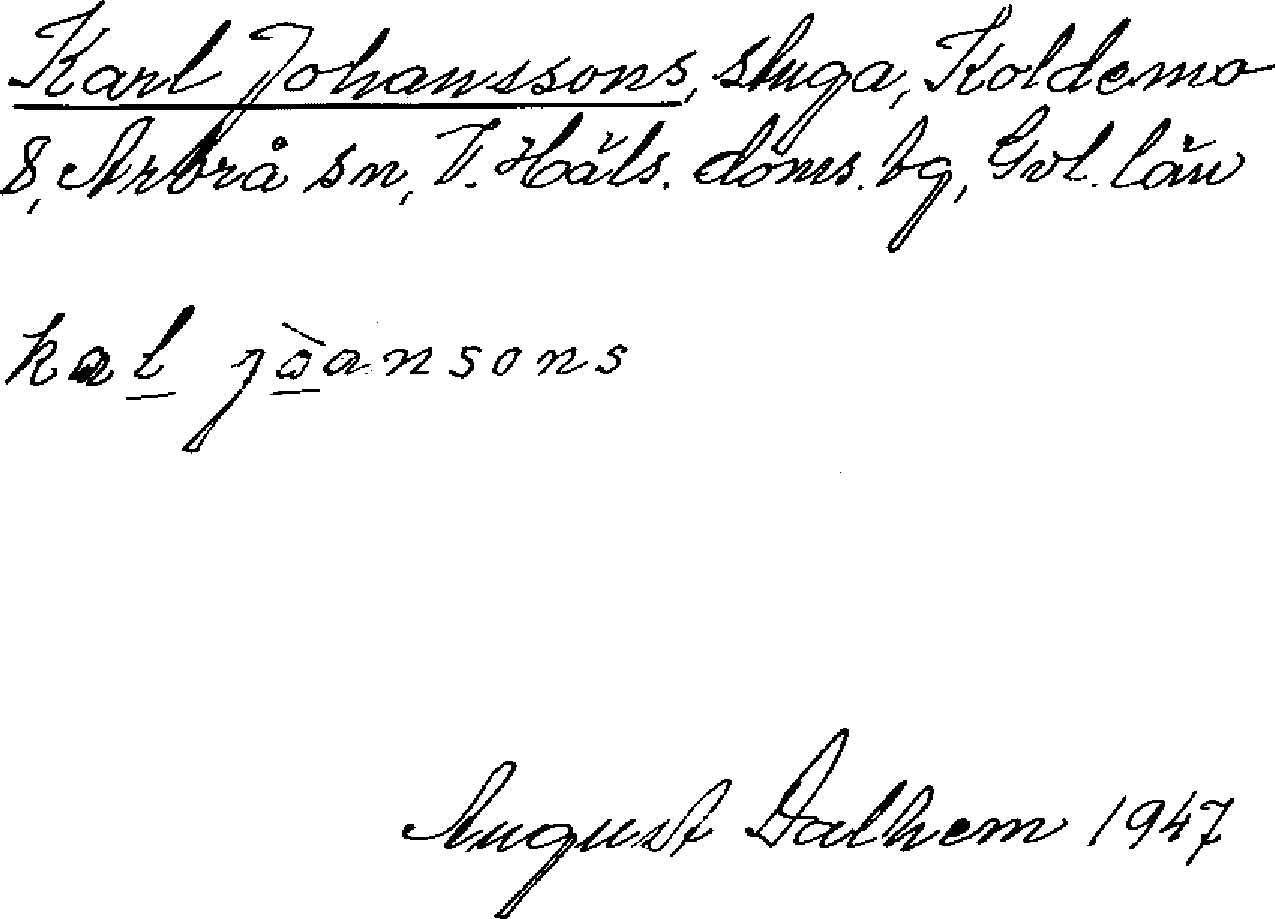 Karl Johanssons, stuga, Koldemo
8, Arbrå sn, V. Häls. doms. bg, Gvl. län
kal jòansons
August Dalhem 1947